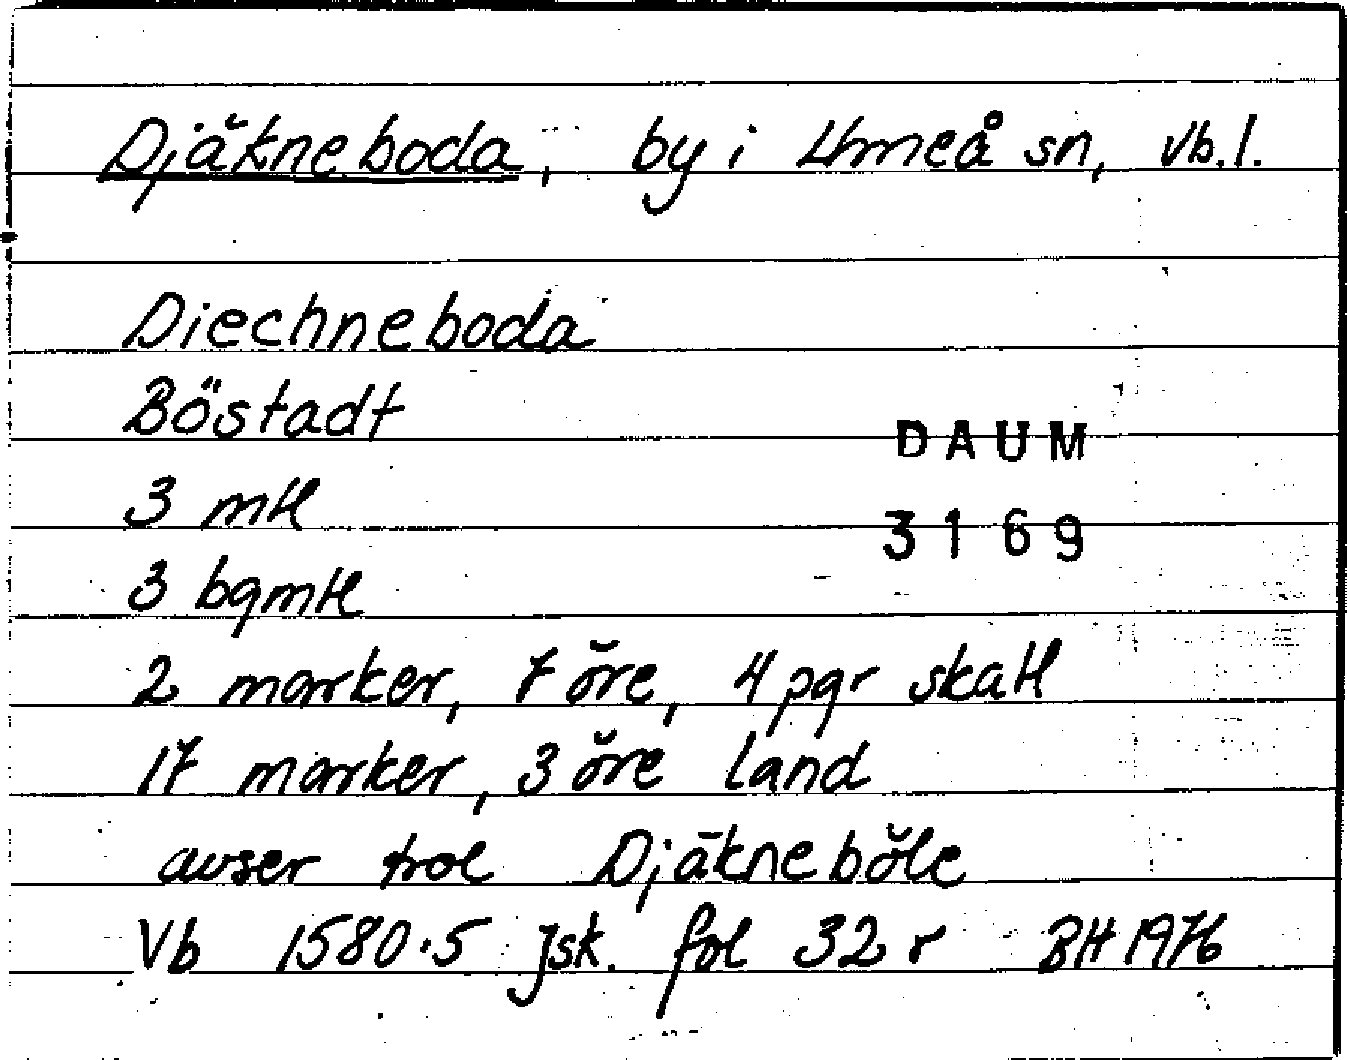 Djäkneboda, by i Umeå sn, vb.l.
Diechneboda
Böstadt
3 mtl
3 bgmtl
2 marker, 7 öre, 4 pgr skatt
17 marker, 3 öre land
avser trol Djäkneböle
Vb 1580:5 Jsk. fol 32 r BH 1976
DAUM
3169